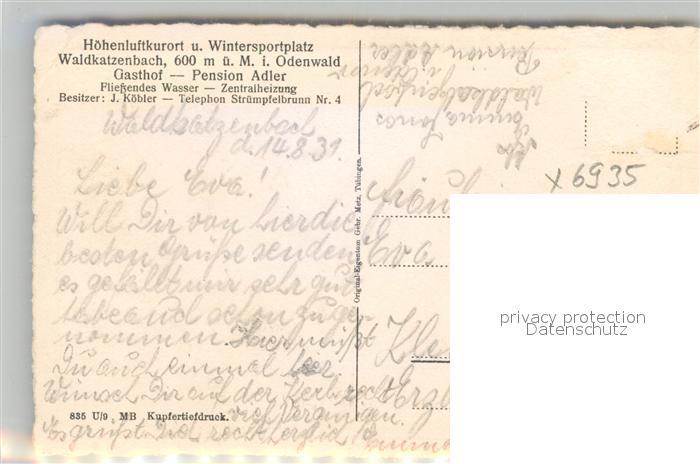 Höhenluftkurort u. Wintersportplatz
Waldkatzenbach, 600 m ü. M. i. Odenwald
Gasthof — Pension Adler
Fließendes Wasser — Zentralheizung
Besitzer: J. Köbler — Telephon Strümpfelbrunn Nr. 4
Waldkatzenbach
d. 14.8.39.
Liebe Eva!
Will Dir von hier die
besten Grüße senden
es gefällt mir sehr gut
habe auch schon zuge-
nommen. Hier mußt
Du auch einmal her.
Wünsch Dir auf der Kerb recht
viel Vergnügen.
Es grüßt Dich recht herzlich
Emma
835 U/9 MB Kupfertiefdruck.
Original-Eigentum Gebr. Metz, Tübingen.
Emma Jonas
Waldkatzenbach
Pension Adler
x 6935
Eva
privacy protection
Datenschutz